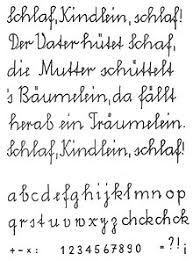 Schlaf, Kindlein, schlaf!
Der Vater hütet Schaf,
die Mutter schüttelt
's Bäumelein, da fällt
herab ein Träumelein.
Schlaf, Kindlein, schlaf!
abcdefghijklmnop
qrstuvwxyzchckchck
+-×: 1234567890 =?!¡